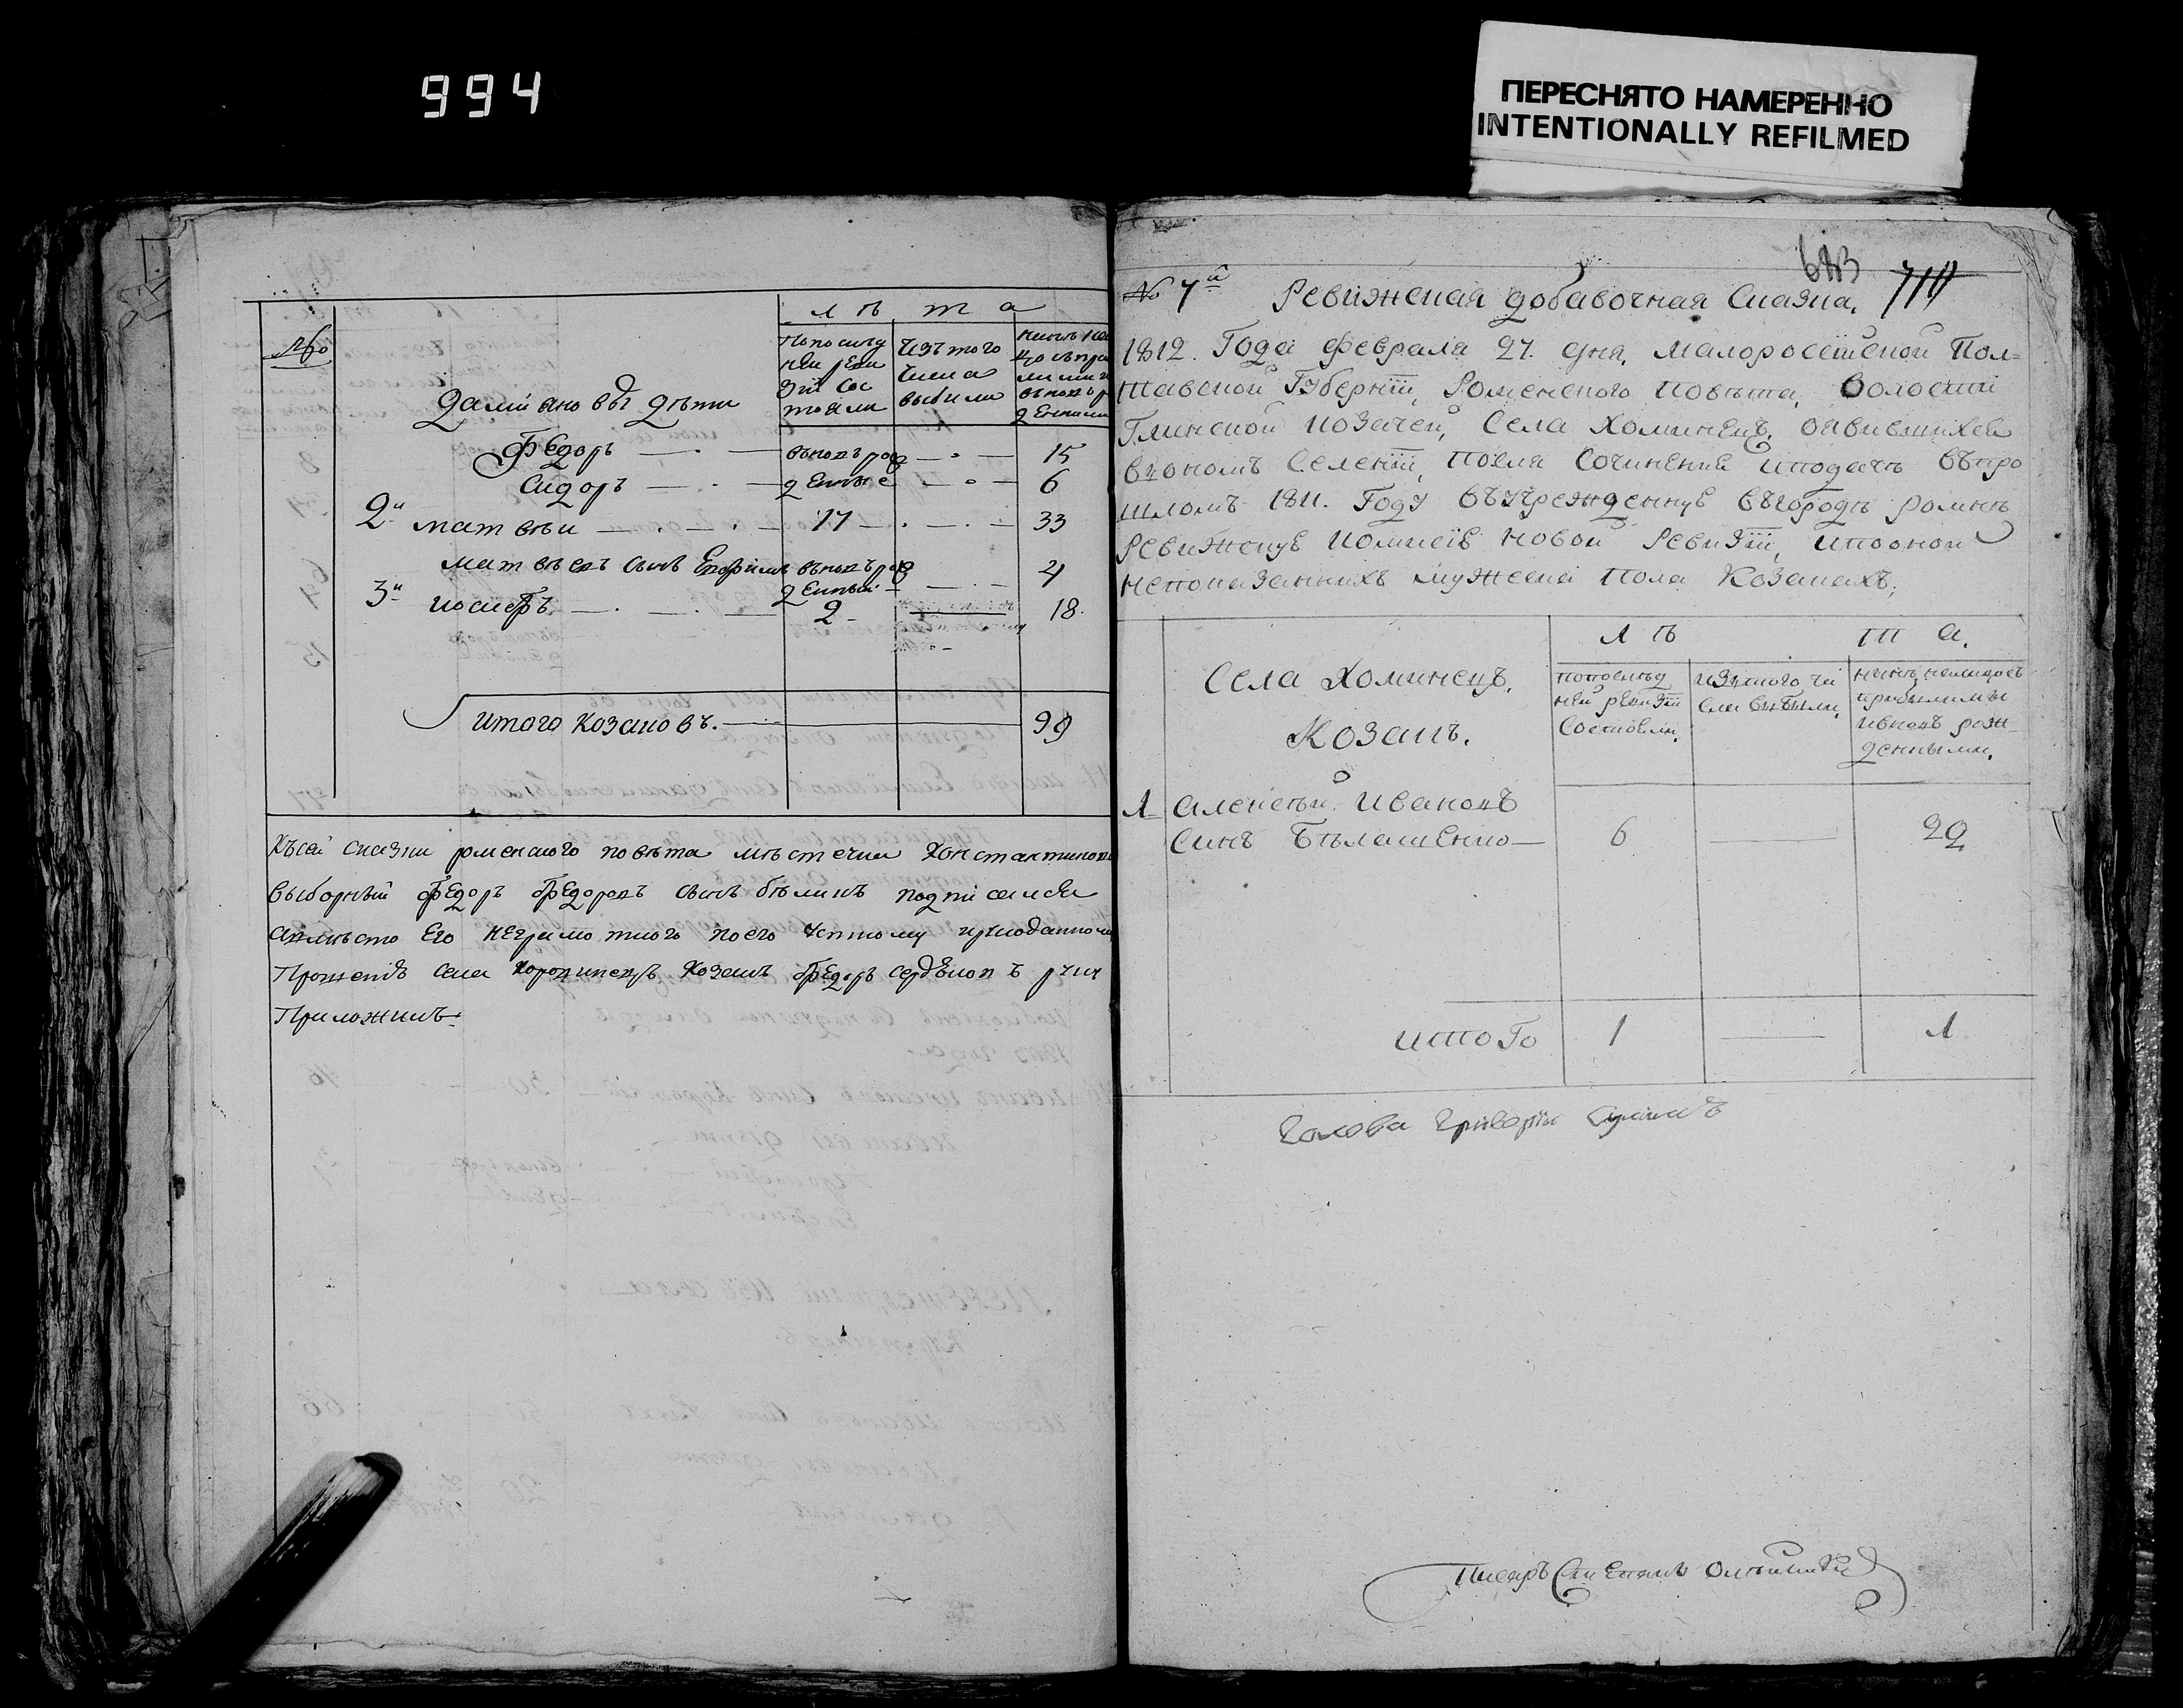 994
ПЕРЕСНЯТО НАМЕРЕННО
INTENTIONALLY REFILMED
№
Лѣта
По послѣд
ней реви
зіи сос
тояли
Изъ того
числа
выбыли
Даміановы дѣти
Федоръ — вновь рож — 15
Сидоръ — денные — 6
2й Матвѣй — 17 — 33
Матвѣевъ сынъ Ефимъ вновь рож — 4
денный
3й Иосифъ — 2 — 18
Итого Козаковъ. — 99
Къ сей сказки роменского повѣта мѣстечка Константинова
выборный Федоръ Федоровъ сынъ Бѣликъ подписался
а вмѣсто его неграмотного по его
села Козакъ Федоръ
Приложилъ
683 711
№ 7й Ревижская добавочная Сказка.
1812. Года февраля 27. дня, Малоросѣйской Пол=
тавской Губерніи, Роменского повѣта, волости
Глинской козачей, Села Хоминецъ, оявившихся
въ ономъ Селеніи, посля Сочиненія и подачѣ въ про
шломъ 1811. Году въ учрежденную въ городѣ ромнѣ
Ревижскую комисію новой Ревизіи, и по оной
непоказаннихъ мужеска пола Козакахъ;
Лѣ та.
Села Хоминецъ.
Козакъ.
по послѣд
ней ревизіи
состояли.
изъ того чи
сла выбыли.
нинѣ на лицо съ
прибылими
и вновь рож-
денными.
1 Алексѣй Ивановъ
Синъ Бѣлашенко — 6 — 29
Итого 1 — 1
Голова Григорій
Писарь